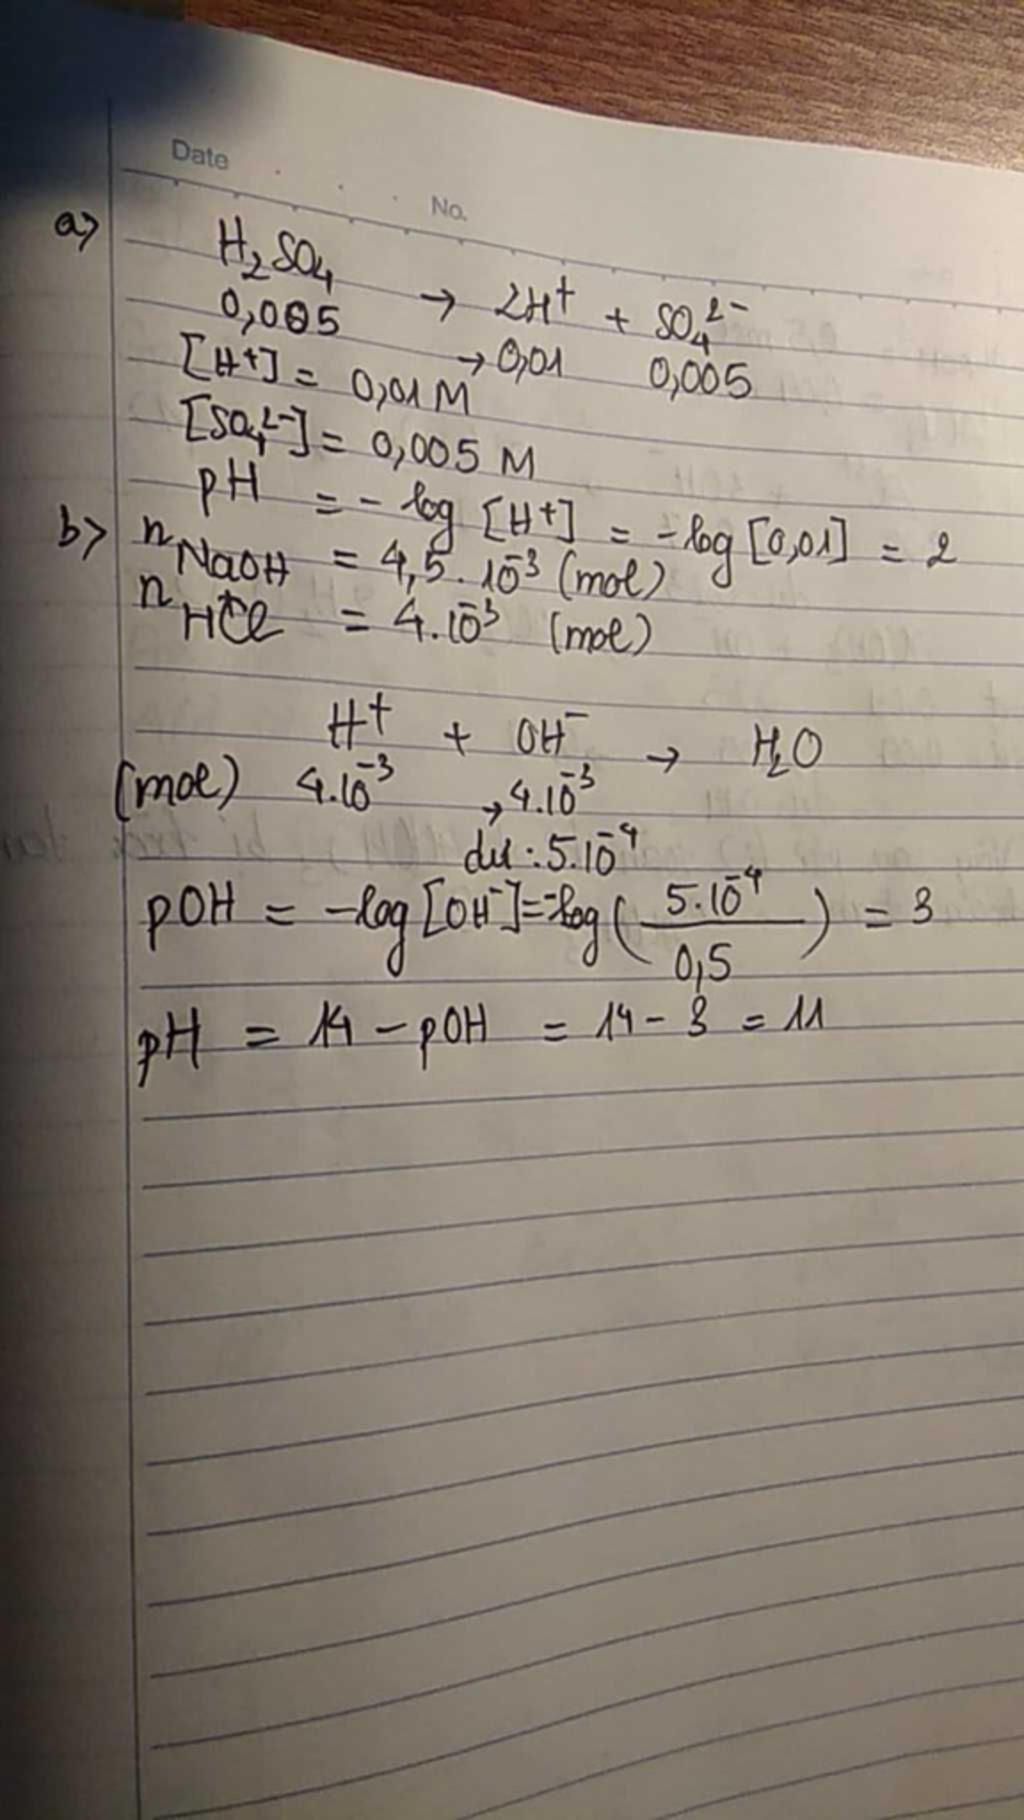 Date
No.
a) H₂SO₄ → 2H⁺ + SO₄²⁻
0,005 → 0,01 0,005
[H⁺] = 0,01 M
[SO₄²⁻] = 0,005 M
pH = - log [H⁺] = - log [0,01] = 2
b) n NaOH = 4,5.10⁻³ (mol)
n HCl = 4.10⁻³ (mol)
H⁺ + OH⁻ → H₂O
(mol) 4.10⁻³ → 4.10⁻³
dư : 5.10⁻⁴
pOH = -log [OH⁻] = -log ( 5.10⁻⁴ / 0,5 ) = 3
pH = 14 - pOH = 14 - 3 = 11